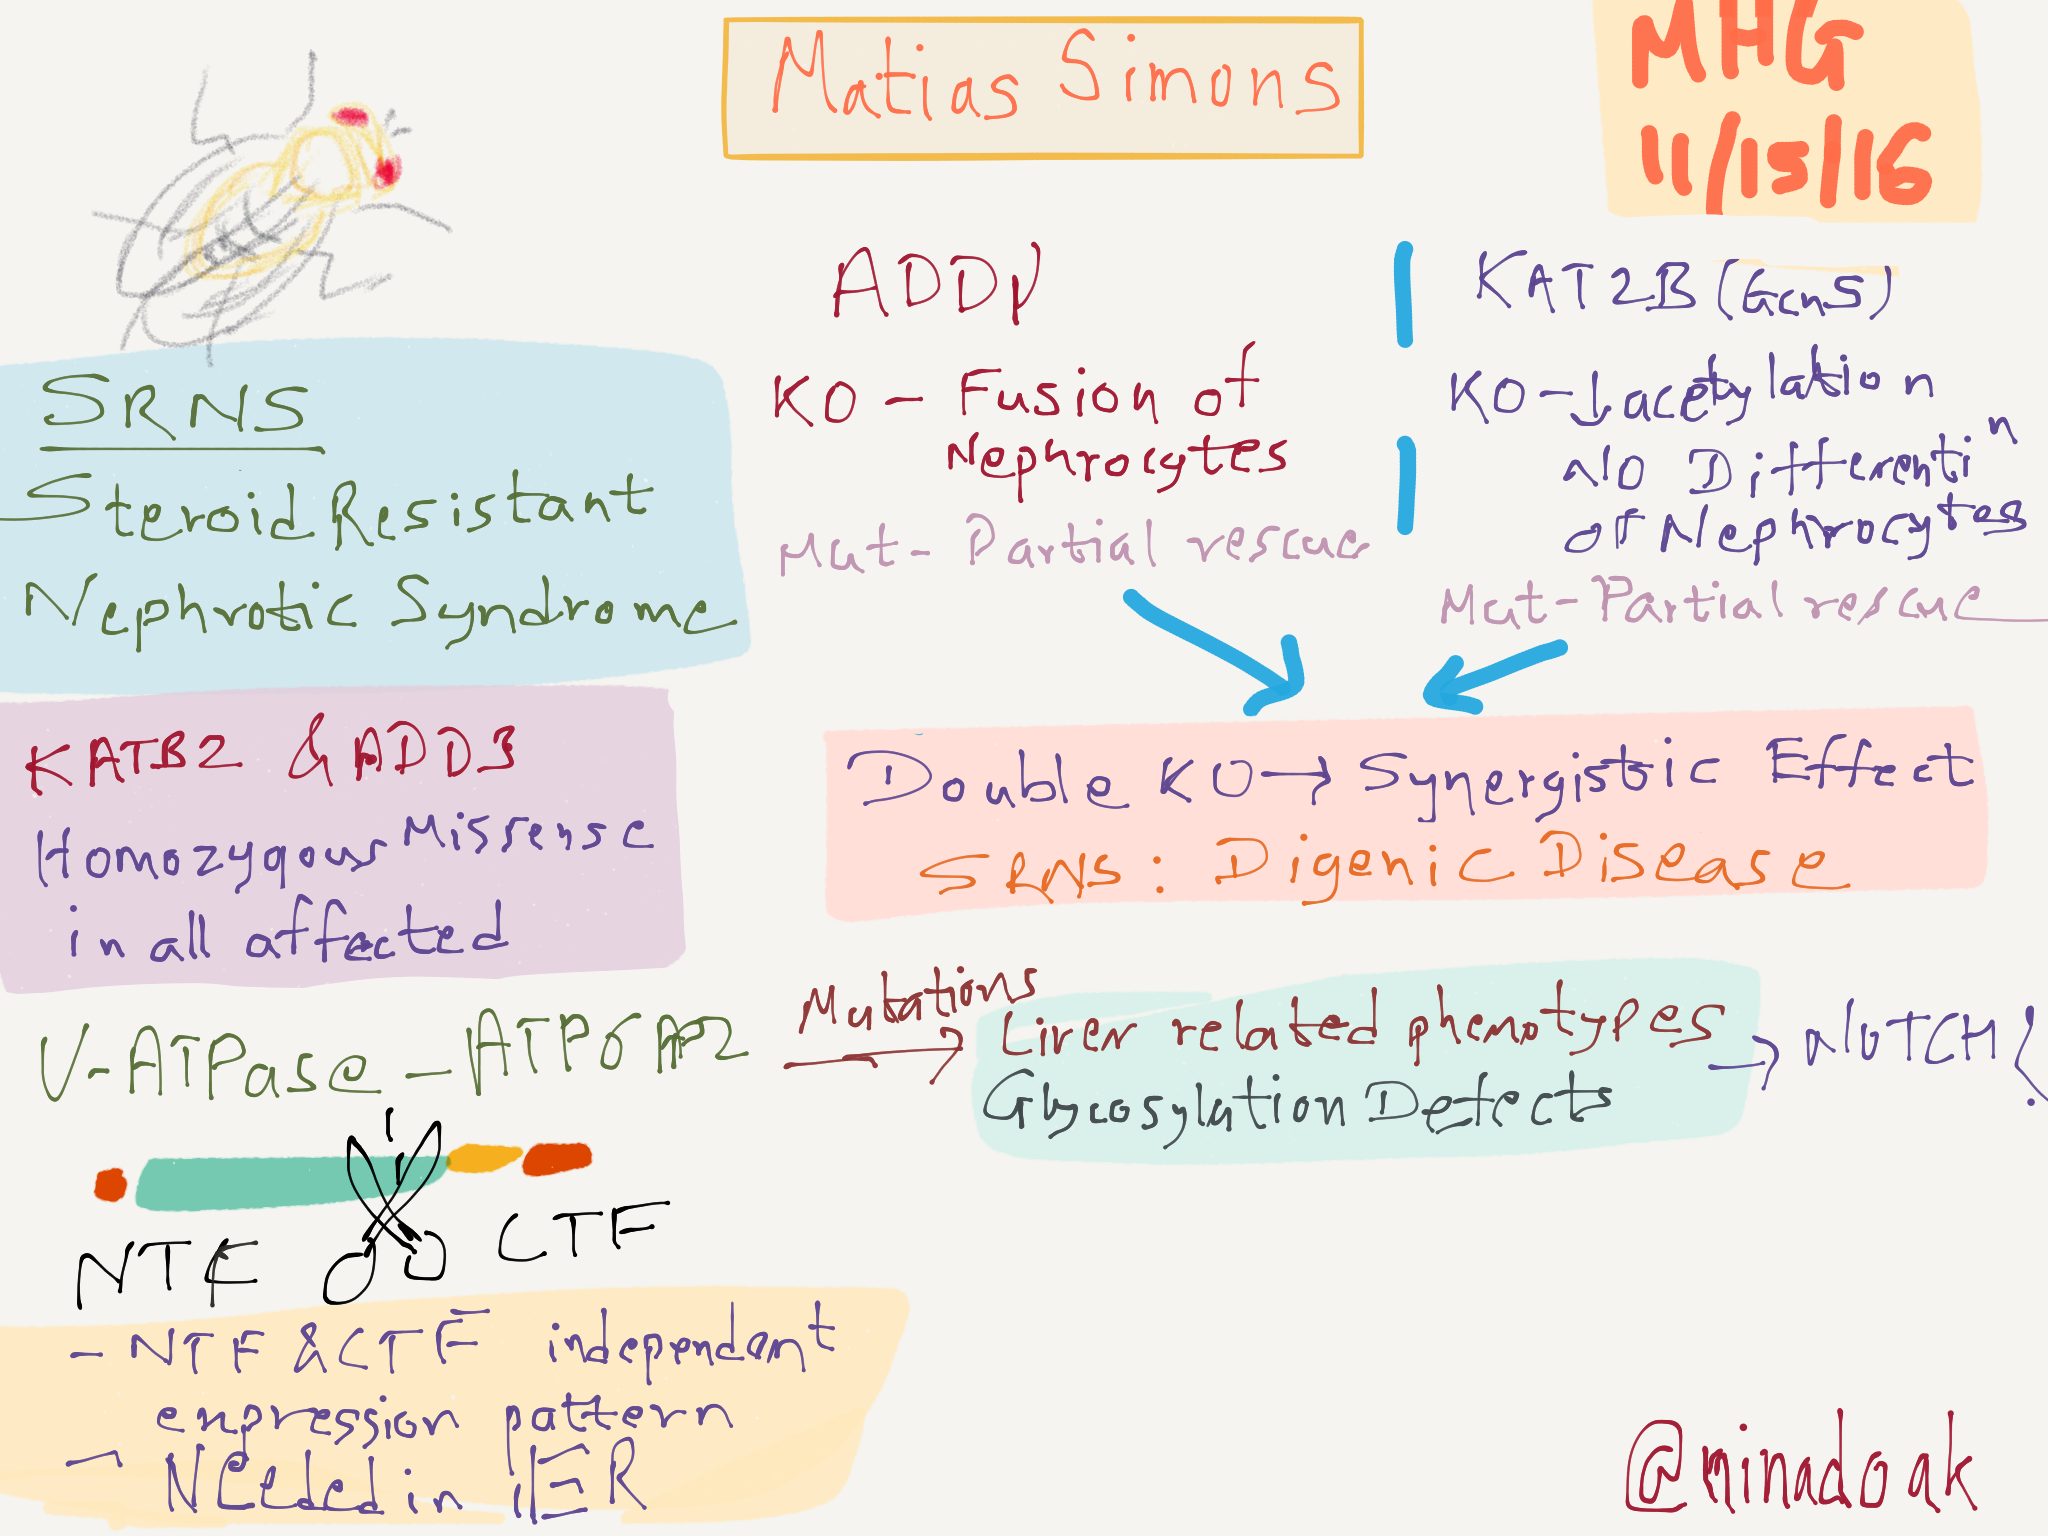 Matias Simons
MHG
11/15/16
SRNS
Steroid Resistant
Nephrotic Syndrome
KATB2 & ADD3
Homozygous Missense
in all affected
ADDγ
KO - Fusion of
Nephrocytes
Mut - Partial rescue
KAT2B (Gcn5)
KO - ↓ acetylation
NO Differentin
of Nephrocytes
Mut - Partial rescue
Double KO → Synergistic Effect
SRNS: Digenic Disease
V-ATPase - ATP6AP2
Mutations
Liver related phenotypes
Glycosylation Defects
→ NOTCH?
NTF
CTF
- NTF & CTF independant
expression pattern
- Needed in ER
@minadoak